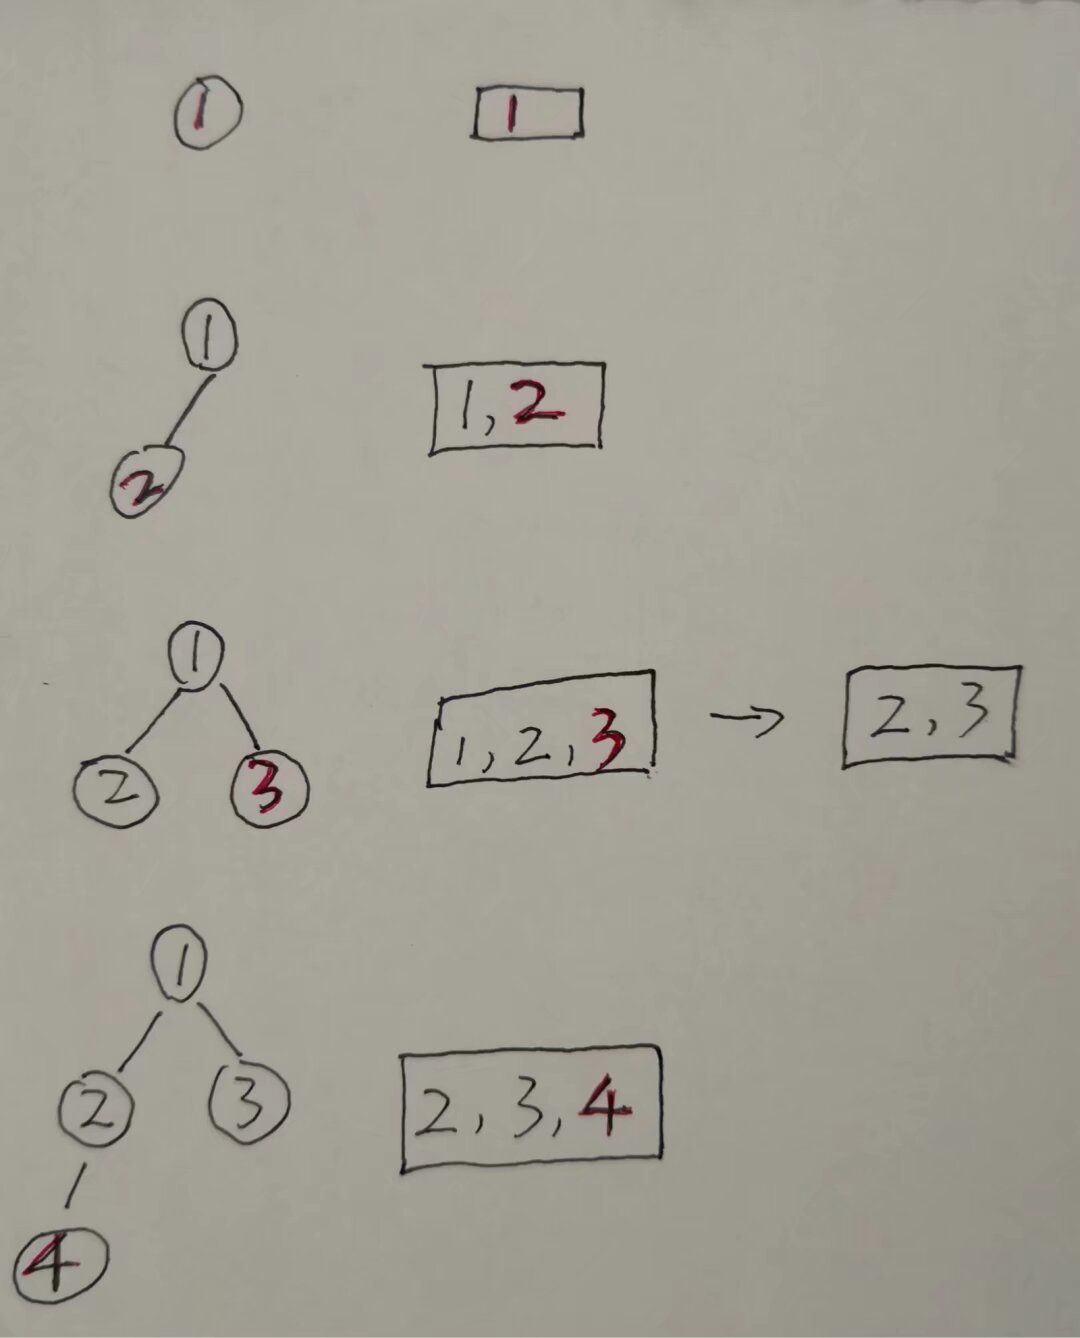 1 1
1
1, 2
2
1
1, 2, 3 → 2, 3
2 3
1
2 3 2, 3, 4
4